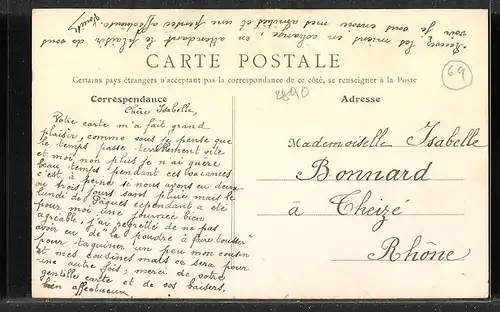 Recevez les miens en échange, en attendant le plaisir de vous
voir je vous envoie mes amitiés et une pensée affectueuse.
CARTE POSTALE
Certains pays étrangers n'acceptant pas la correspondance de ce côté, se renseigner à la Poste
2890
69
Correspondance
Chère Isabelle,
Votre carte m'a fait grand
plaisir, comme vous je pense que
le temps passe terriblement vite
et moi non plus je n'ai guère
beau temps pendant ces vacances
c'est à peine si nous avons eu deux
ou trois jours sans pluie, mais le
lundi de Pâques cependant a été
pour moi une journée bien
agréable, j'ai regretté de ne pas
avoir eu de "la poudre à faire tousser"
pour taquiner un peu mon cousin
et mes cousines mais ce sera pour
une autre fois; merci de votre
gentille carte et de vos baisers.
bien affectueux,
Adresse
Mademoiselle Isabelle
Bonnard
à Theizé
Rhône